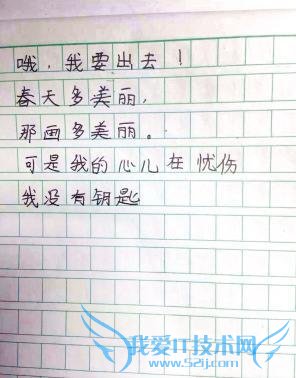 哦，我要出去！
春天多美丽，
那画多美丽。
可是我的心儿在忧伤
我没有钥匙
我爱IT技术网
www.52ij.com